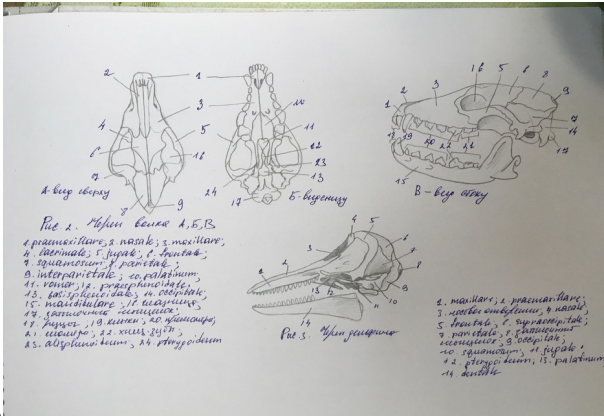 А-вид сверху
Б-вид снизу
В-вид сбоку
Рис 2. Череп волка А, Б, В
1. praemaxillare; 2. nasale; 3. maxillare;
4. lacrimale; 5. jugale; 6. frontale;
7. squamosum; 8. parietale;
9. interparietale; 10. palatinum;
11. vomer; 12. praesphenoidale;
13. basisphenoidale; 14. occipitale;
15. mandibulare; 16. глазница;
17. затылочный мыщелок;
резцы; 19. клыки; 20. премоляры;
21. моляры; 22. хищ. зубы;
23. alisphenoideum; 24. pterygoideum
Рис 3. Череп дельфина
maxillare; 2. praemaxillare;
3. носовое отверстие; 4. nasale;
5. frontale; 6. supraoccipitale;
7. parietale; 8. затылочный
мыщелок; 9. occipitale;
10. squamosum; 11. jugale;
12. pterygoideum; 13. palatinum
14. dentale